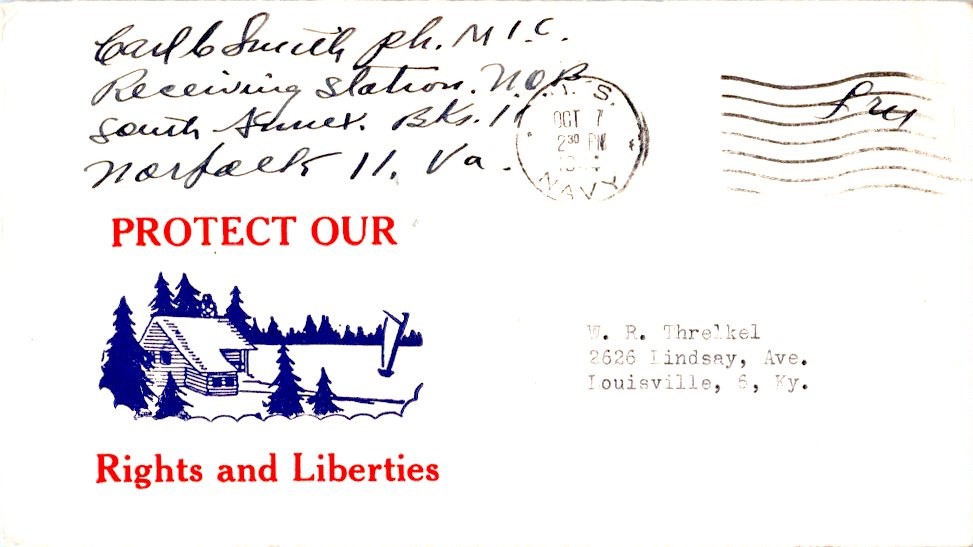 Carl C Smith ph. M 1. C.
Receiving Station. NOB
South Annex. Bks. 11
Norfolk 11, Va.
U. S.
OCT 7
2 30 PM
NAVY
Free
PROTECT OUR
Rights and Liberties
W. R. Threlkel
2626 Lindsay, Ave.
Louisville, 6, Ky.